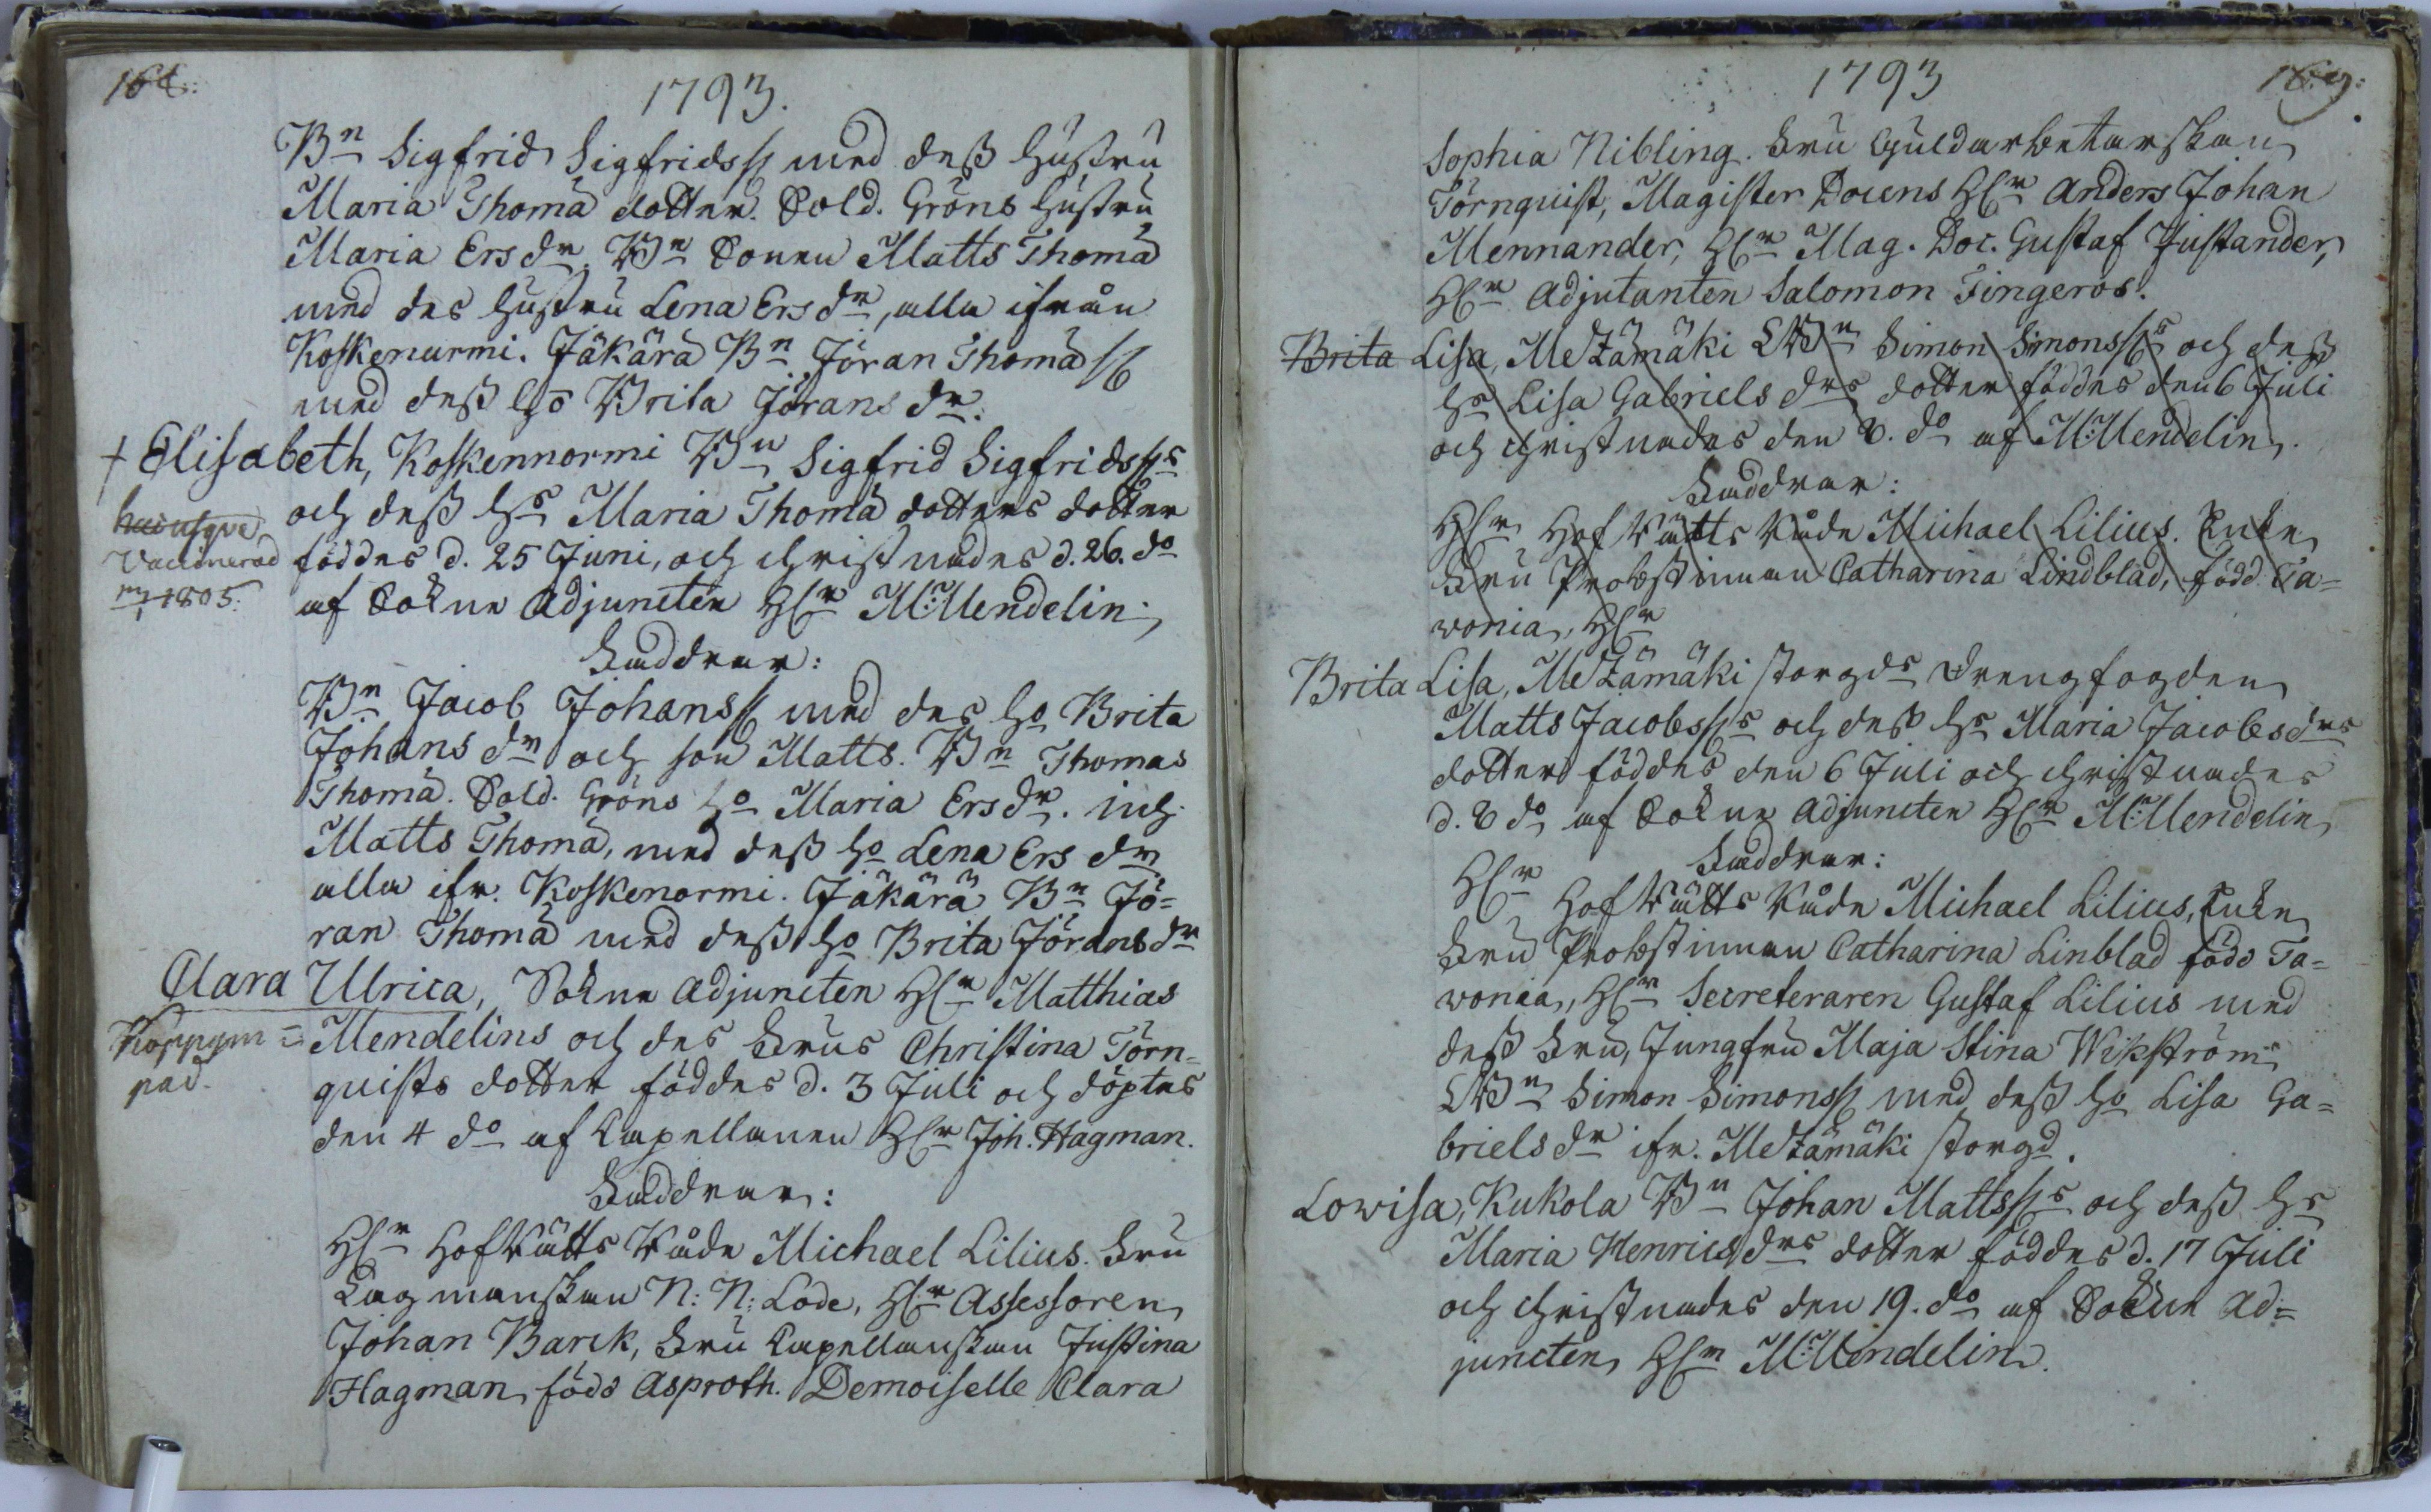 168.
1793.
Bn Sigfrid Sigfridss med dess hustru
Maria Thomä dotter. Sold. Gröns hustru
Maria Ers dr. Bn Sonen Matts Thomä
med des hustru Lena Ers dr, alla ifrån
Koskenurmi. Jäkärä Bn Jöran Thomä ss
med dess ho Brita Jörans dr.
† Elisabeth, Koskennormi Bn Sigfrid Sigfridss s
och dess hs Maria Thomä dotters dotter
Vaccinerad
1805.
föddes d. 25 Juni, och christnades d. 26. do
af Sokne Adjuncten Hr M: Mendelin.
Faddrar:
Bn Jacob Johanss med des ho Brita
Johans dr och son Matts. Bn Thomas
Thomä. Sold. Gröns ho Maria Ers dr. inh.
Matts Thomä, med dess ho Lena Ers dr
alla ifr. Koskenormi. Jäkärä Bn Jö=
ran Thomä med dess ho Brita Jörans dr
Clara Ulrica, Sokne Adjuncten Hr Matthias
Koppym=
pad.
Mendelins och des Frus Christina Törn=
quists dotter föddes d. 3 Juli och döptes
den 4 do af Capellanen Hr Joh. Hagman.
Faddrar:
Hr HofRätts Råde Michael Lilius. Fru
Lagmanskan N: N: Lode, Hr Assessoren
Johan Barck, Fru Capellanskan Justina
Hagman född Asproth. Demoiselle Clara
1793
169.
Sophia Nibling. Fru Guldarbetarskan
Törnquist, Magister Docens Hr Anders Johan
Mennander, Hr Mag. Doc. Gustaf Justander,
Hr Adjutanten Salomon Fingeros.
Brita Lisa, Metzämäki LBn Simon Simonss s och dess
hs Lisa Gabriels drs dotter föddes den 6 Juli
och christnades den 8. do af M: Mendelin.
Faddrar:
Hr Hof Rätts Råde Michael Lilius. Enke
Fru Probstinnan Catharina Lindblad, född Ta=
wonia, Hr
Brita Lisa, Metzämäki storgds Drengfogden
Matts Jacobss s och dess hs Maria Jacobs drs
dotter föddes den 6 Juli och christnades
d. 8 do af Sokne Adjuncten Hr M: Mendelin
Faddrar:
Hr Hof Rätts Råde Michael Lilius, Enke
Fru Probstinnan Catharina Linblad född Ta=
wonia, Hr Secreteraren Gustaf Lilius med
dess Fru, Jungfru Maja Stina Wikström
LBn Simon Simonss med dess ho Lisa Ga=
briels dr ifr. Metzämäki storgd.
Lowisa, Kukola Bn Johan Mattss s och dess hs
Maria Henrics drs dotter föddes d. 17 Juli
och christnades den 19. do af Sokne Ad=
juncten Hr M: Mendelin.